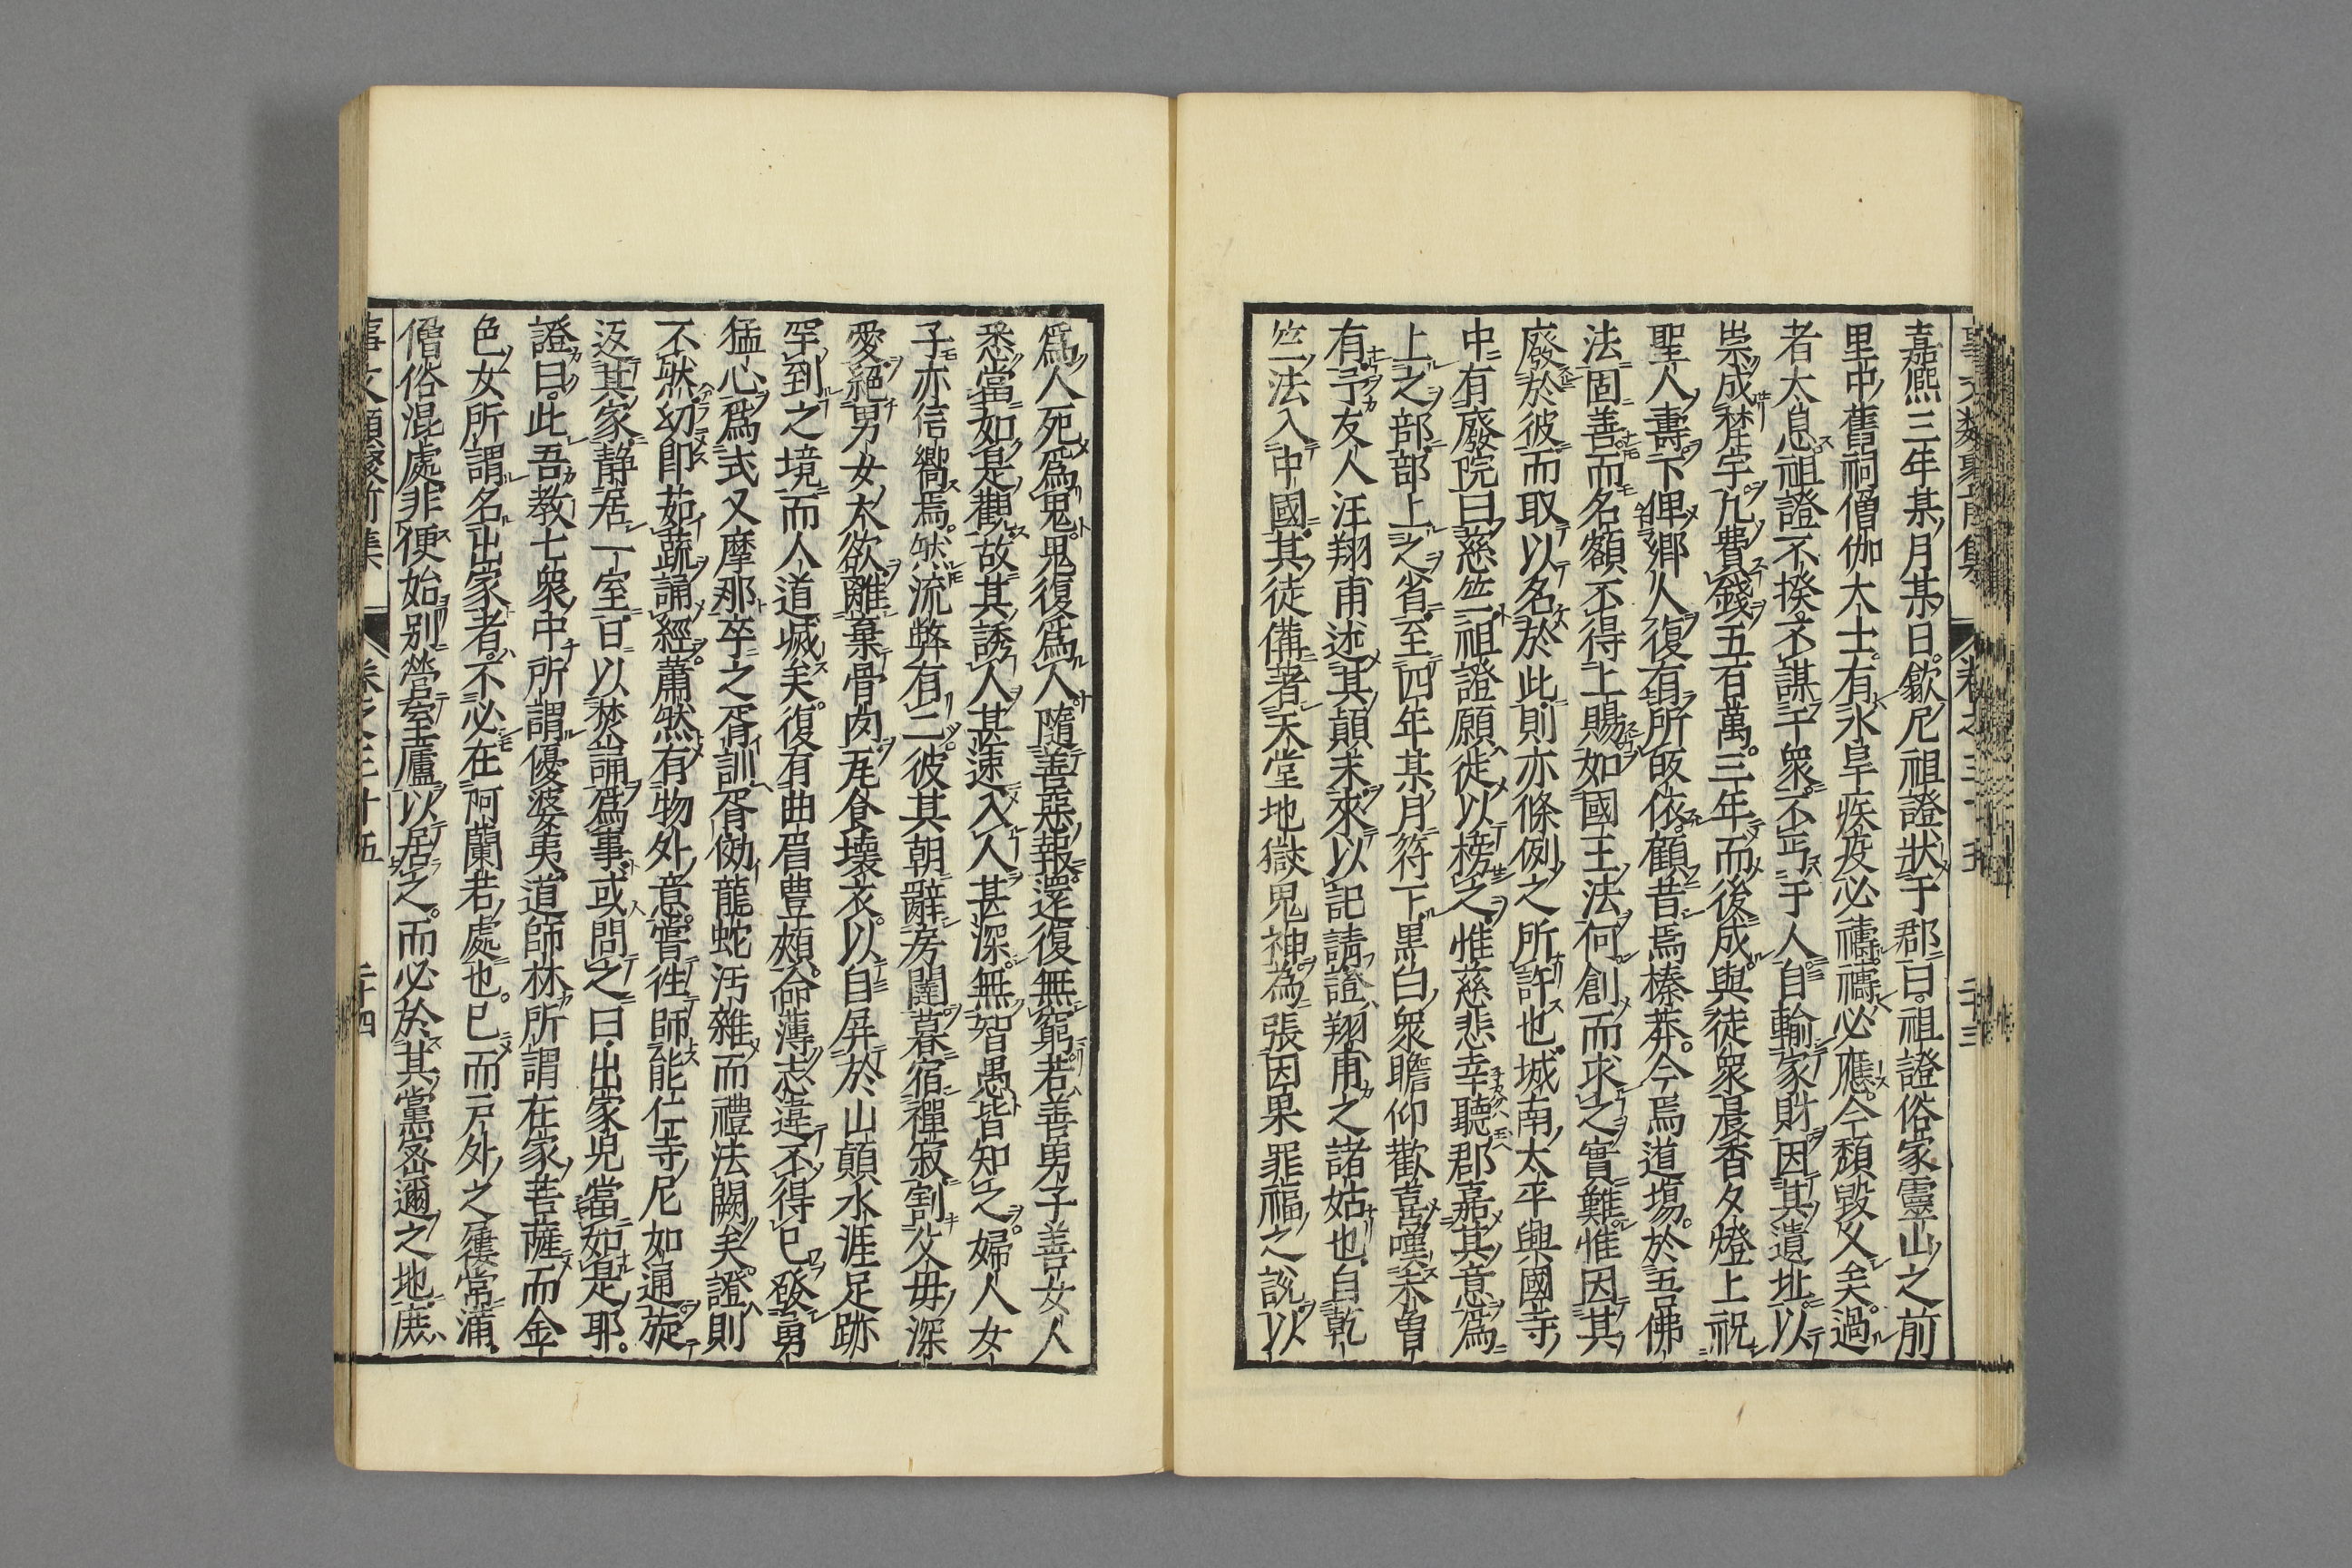 嘉熈三年某月某日歙尼祖證狀于郡曰祖證俗家靈山之前
里中舊祠僧伽大士有氷旱疾疫必禱禱必應今頽毀久矣過
者太息祖證不揆不謀于衆不丐于人自輸家財因其遺址以
崇成梵宇凡費錢五百萬三年而後成與徒衆晨香夕燈上祝
聖人壽下俾鄉人復有所皈依顧昔焉榛莽今焉道場於吾佛
法固善而名額不得上賜如國王法何創而求之實難惟因其
廢於彼而取以名於此則亦條例之所許也城南太平興國寺
中有廢院曰慈竺祖證願徙以榜之惟慈悲幸聽郡嘉其意爲
上之部部上之省至四年某月符下黒白衆瞻仰歡喜嘆未曾
有予友人汪翔甫述其顛末來以記請證翔甫之諸姑也自乾
竺法入中國其徒備著天堂地獄鬼神為張因果罪福之說以
爲人死爲鬼鬼復爲人隨善惡報還復無窮若善男子善女人
悉當如是觀故其誘人甚速入人甚深無智愚皆知之婦人女
子亦信嚮焉然流弊有二彼其朝辭房闥暮宿禪寂割父母深
愛絕男女大欲離棄骨肉瓦食壞衣以自屏於山顛水涯足跡
罕到之境而人道滅矣復有曲眉豊頰命薄志違不得已發勇
猛心爲式叉摩那卒之胥訓胥傚龍蛇汚雜而禮法闕矣證則
不然幼即茹蔬誦經蕭然有物外意嘗徃師能仁寺尼如通旋
返其家静居一室日以焚誦爲事或問之曰出家兒當如是耶
證曰此吾教七衆中所謂優婆夷道師林所謂在家菩薩而金
色女所謂名出家者不必在阿蘭若處也已而戸外之屨常滿
僧俗混處非便始別營室廬以居之而必於其黨密邇之地庶
事文類聚前集　卷之三十五　二十四